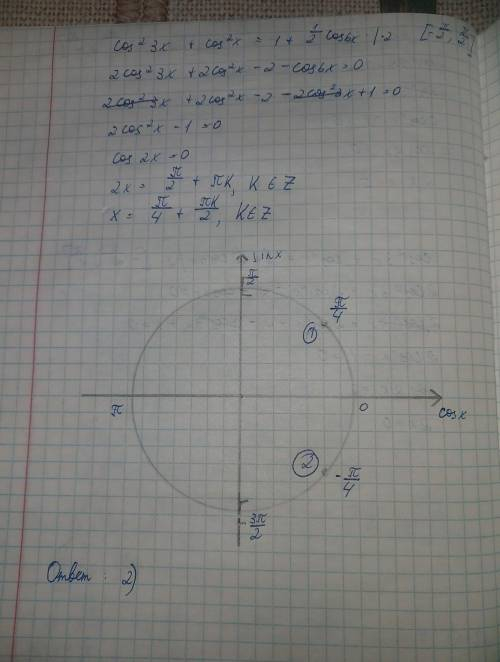 cos²3x + cos²x = 1 + 1/2 cos6x |·2 [-π/2; π/2]
2cos²3x + 2cos²x - 2 - cos6x = 0
2cos²3x + 2cos²x - 2 - 2cos²3x + 1 = 0
2cos²x - 1 = 0
cos 2x = 0
2x = π/2 + πK, K ∈ Z
x = π/4 + πK/2, K ∈ Z
sinx
π/2
π/4
1
π
0
cosx
2
-π/4
-3π/2
Ответ: 2)